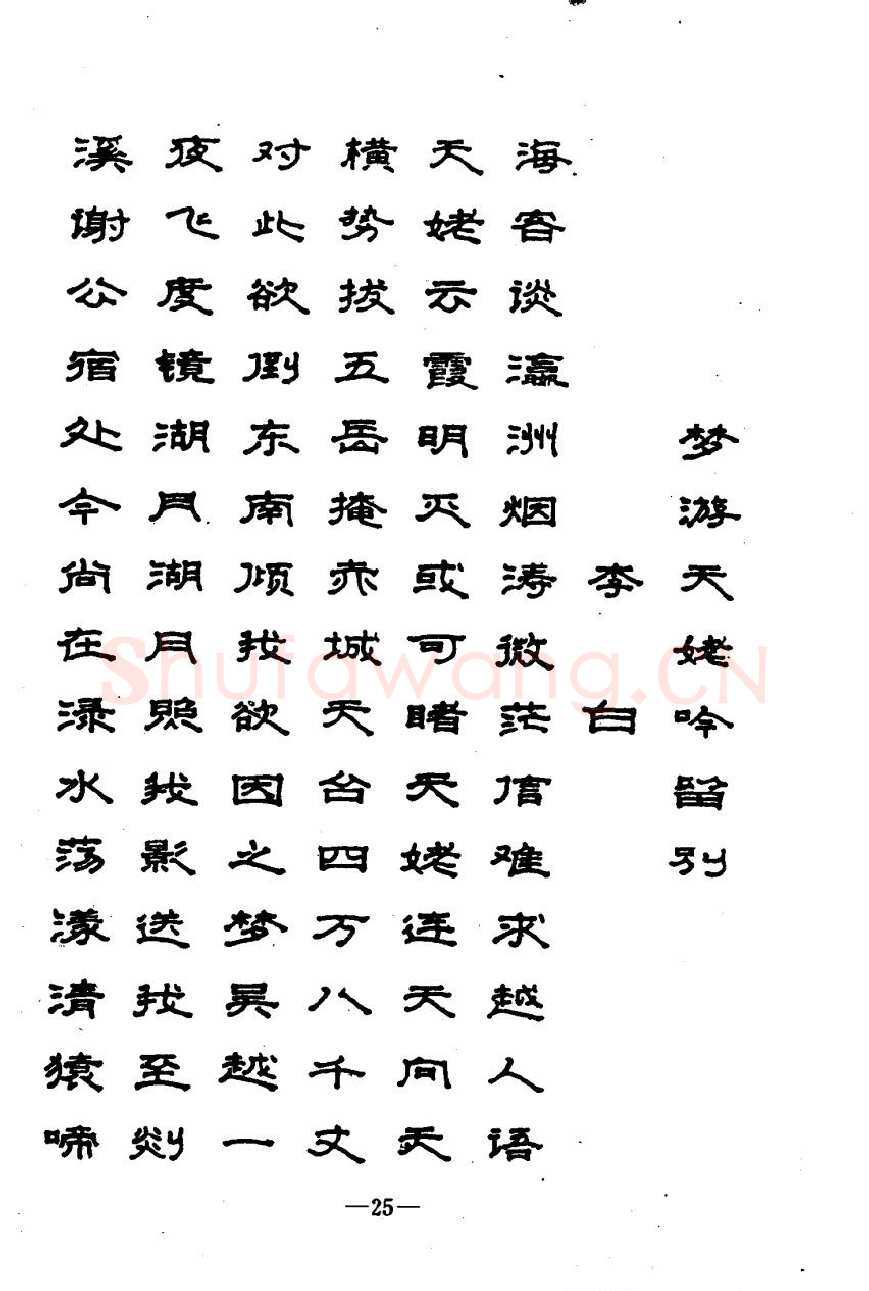 梦游天姥吟留别
李白
海客谈瀛洲烟涛微茫信难求越人语
天姥云霞明灭或可睹天姥连天向天
横势拔五岳掩赤城天台四万八千丈
对此欲倒东南倾我欲因之梦吴越一
夜飞度镜湖月湖月照我影送我至剡
溪谢公宿处今尚在渌水荡漾清猿啼
—25—
Shufawang.CN